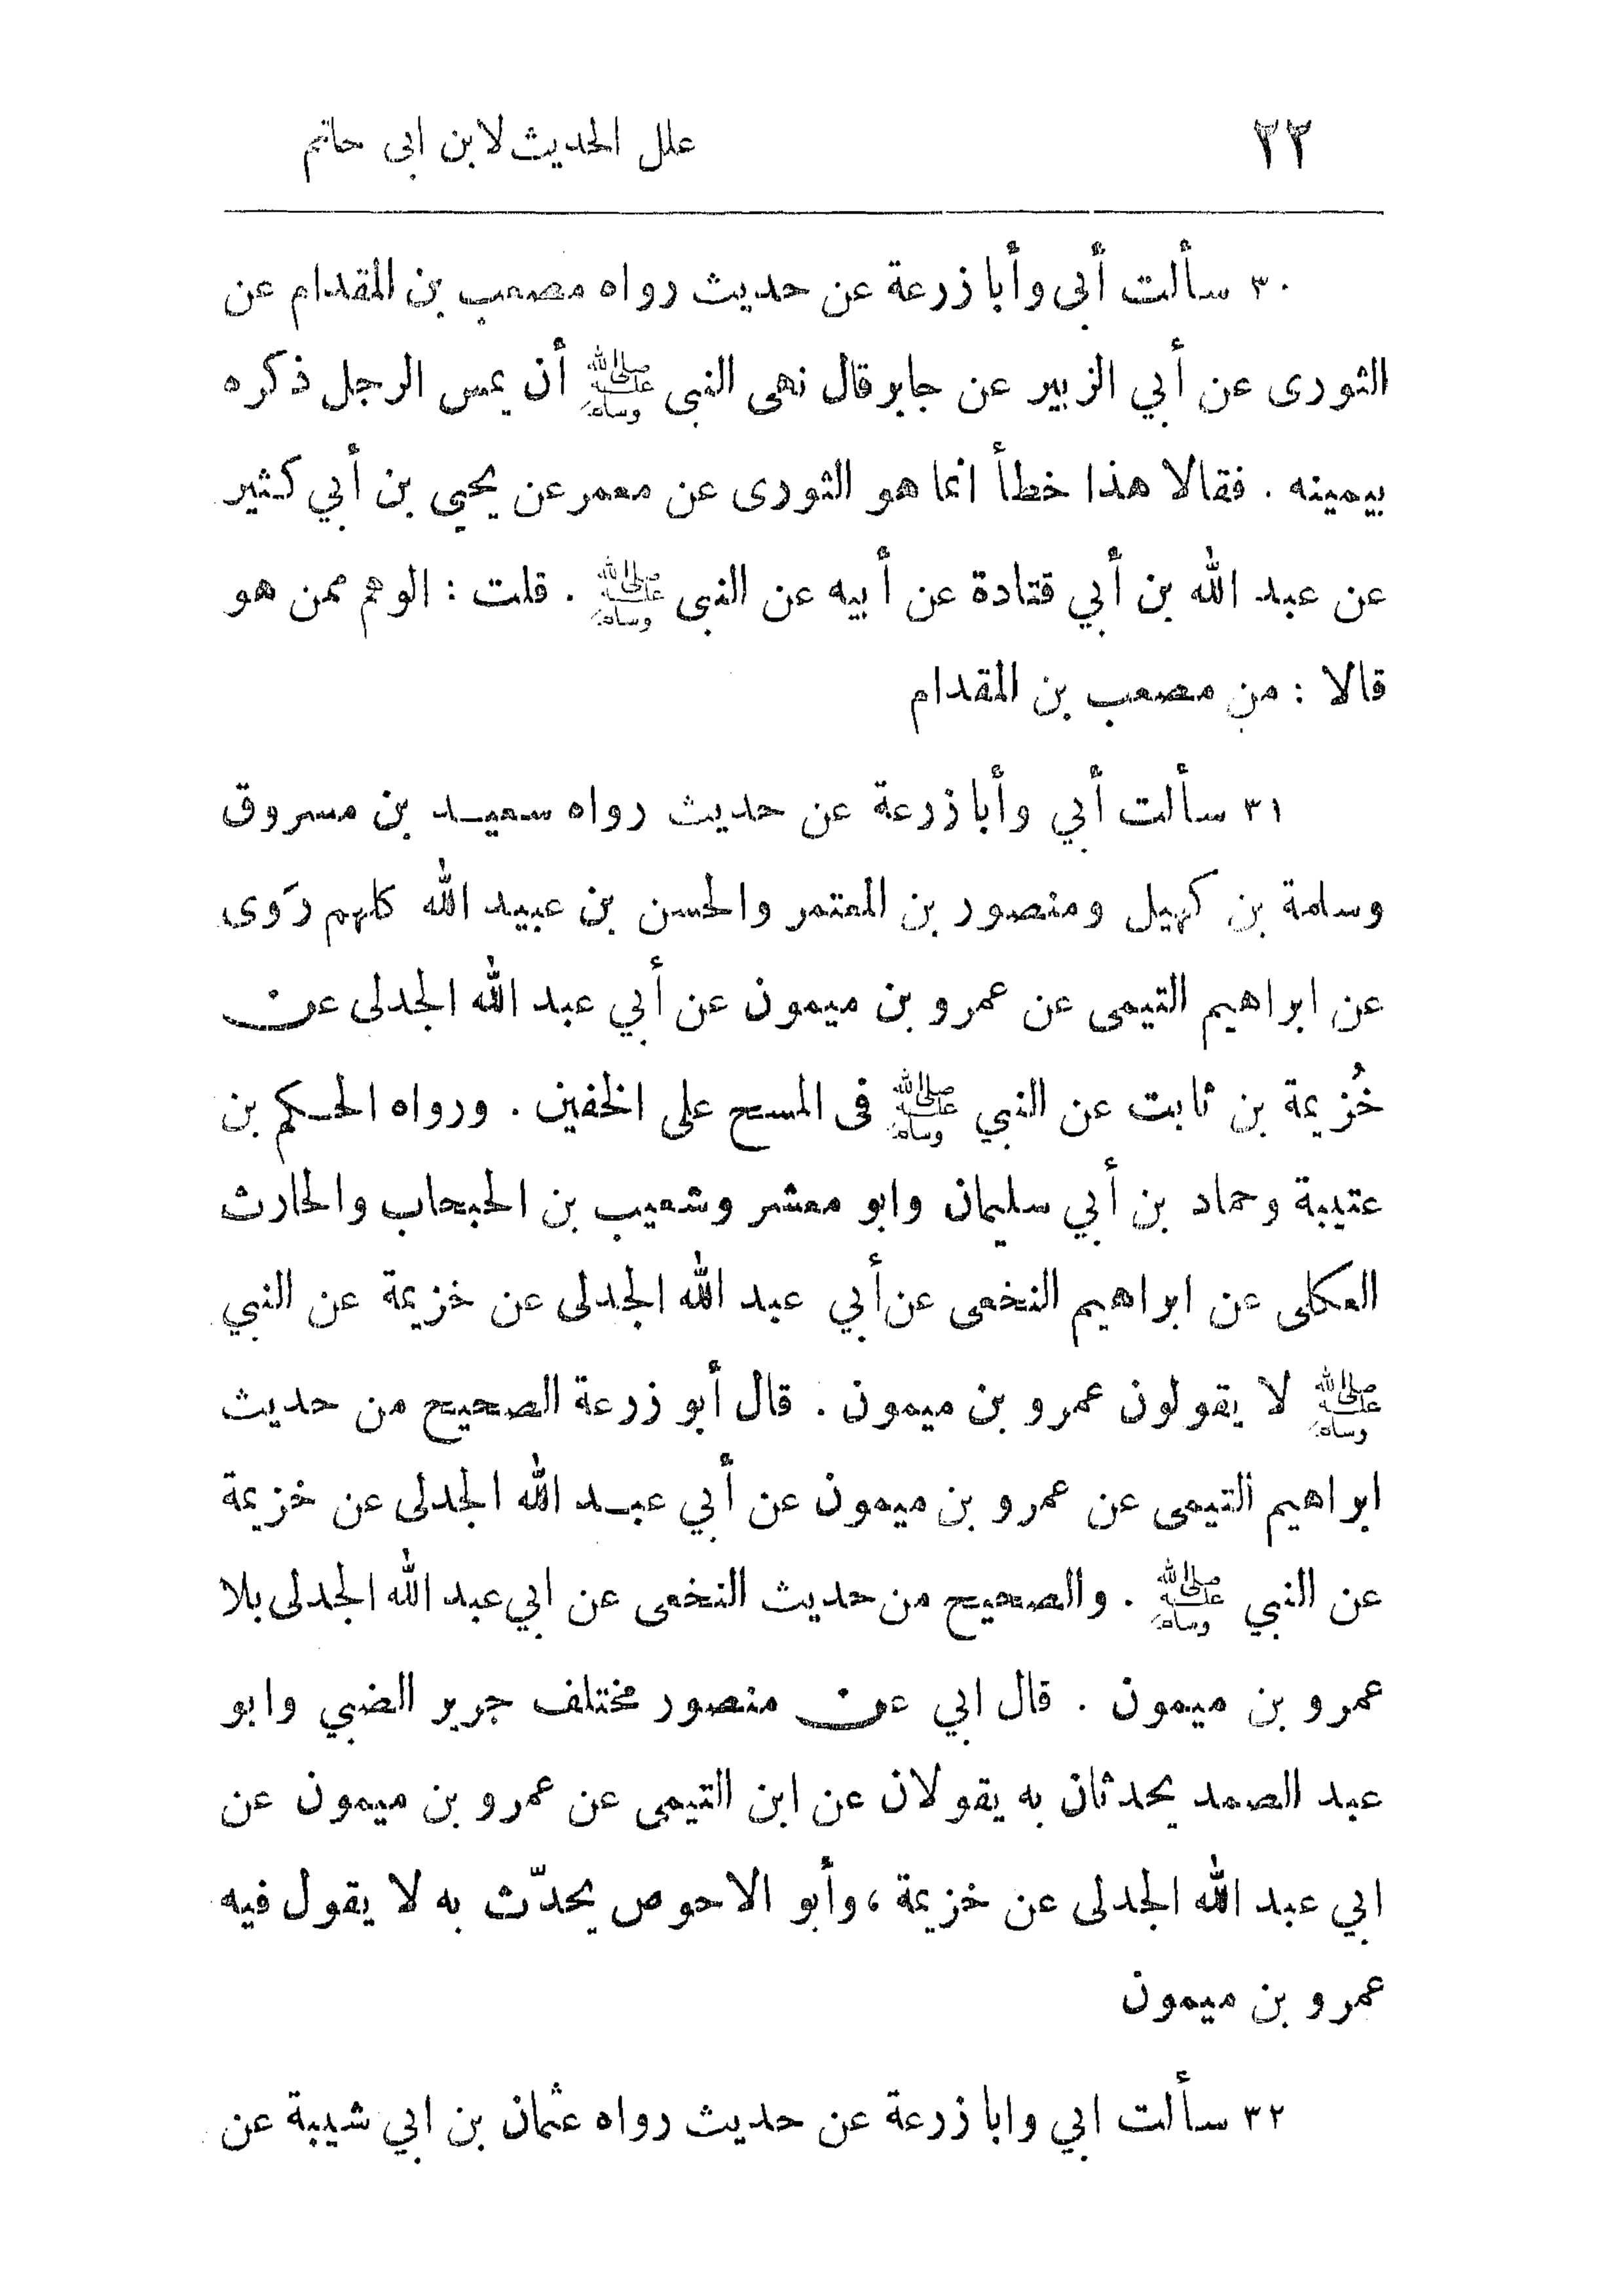 ٢٢ علل الحديث لابن ابى حاتم
٣٠ سألت أبى وأبا زرعة عن حديث رواه مصعب بن المقدام عن
الثورى عن أبي الزبير عن جابر قال نهى النبى ﷺ أن يمس الرجل ذكره
بيمينه . فقالا هذا خطأ انما هو الثورى عن معمر عن يحيى بن أبي كثير
عن عبد الله بن أبي قتادة عن أبيه عن النبى ﷺ . قلت : الوهم ممن هو
قالا : من مصعب بن المقدام
٣١ سألت أبي وأبا زرعة عن حديث رواه سعيد بن مسروق
وسلمة بن كهيل ومنصور بن المعتمر والحسن بن عبيد الله كلهم رَوى
عن ابراهيم التيمى عن عمرو بن ميمون عن أبي عبد الله الجدلى عن
خُزيمة بن ثابت عن النبي ﷺ فى المسح على الخفين . ورواه الحكم بن
عتيبة وحماد بن أبي سليمان وابو معشر وشعيب بن الحبحاب والحارث
العكلى عن ابراهيم النخعى عن أبي عبد الله الجدلى عن خزيمة عن النبي
ﷺ لا يقولون عمرو بن ميمون . قال أبو زرعة الصحيح من حديث
ابراهيم التيمى عن عمرو بن ميمون عن أبي عبد الله الجدلى عن خزيمة
عن النبي ﷺ . والصحيح من حديث النخعى عن ابي عبد الله الجدلى بلا
عمرو بن ميمون . قال ابي عن منصور مختلف جرير الضبي وابو
عبد الصمد يحدثان به يقولان عن ابن التيمى عن عمرو بن ميمون عن
ابي عبد الله الجدلى عن خزيمة ، وأبو الاحوص يحدّث به لا يقول فيه
عمرو بن ميمون
٣٢ سألت ابي وابا زرعة عن حديث رواه عثمان بن ابي شيبة عن